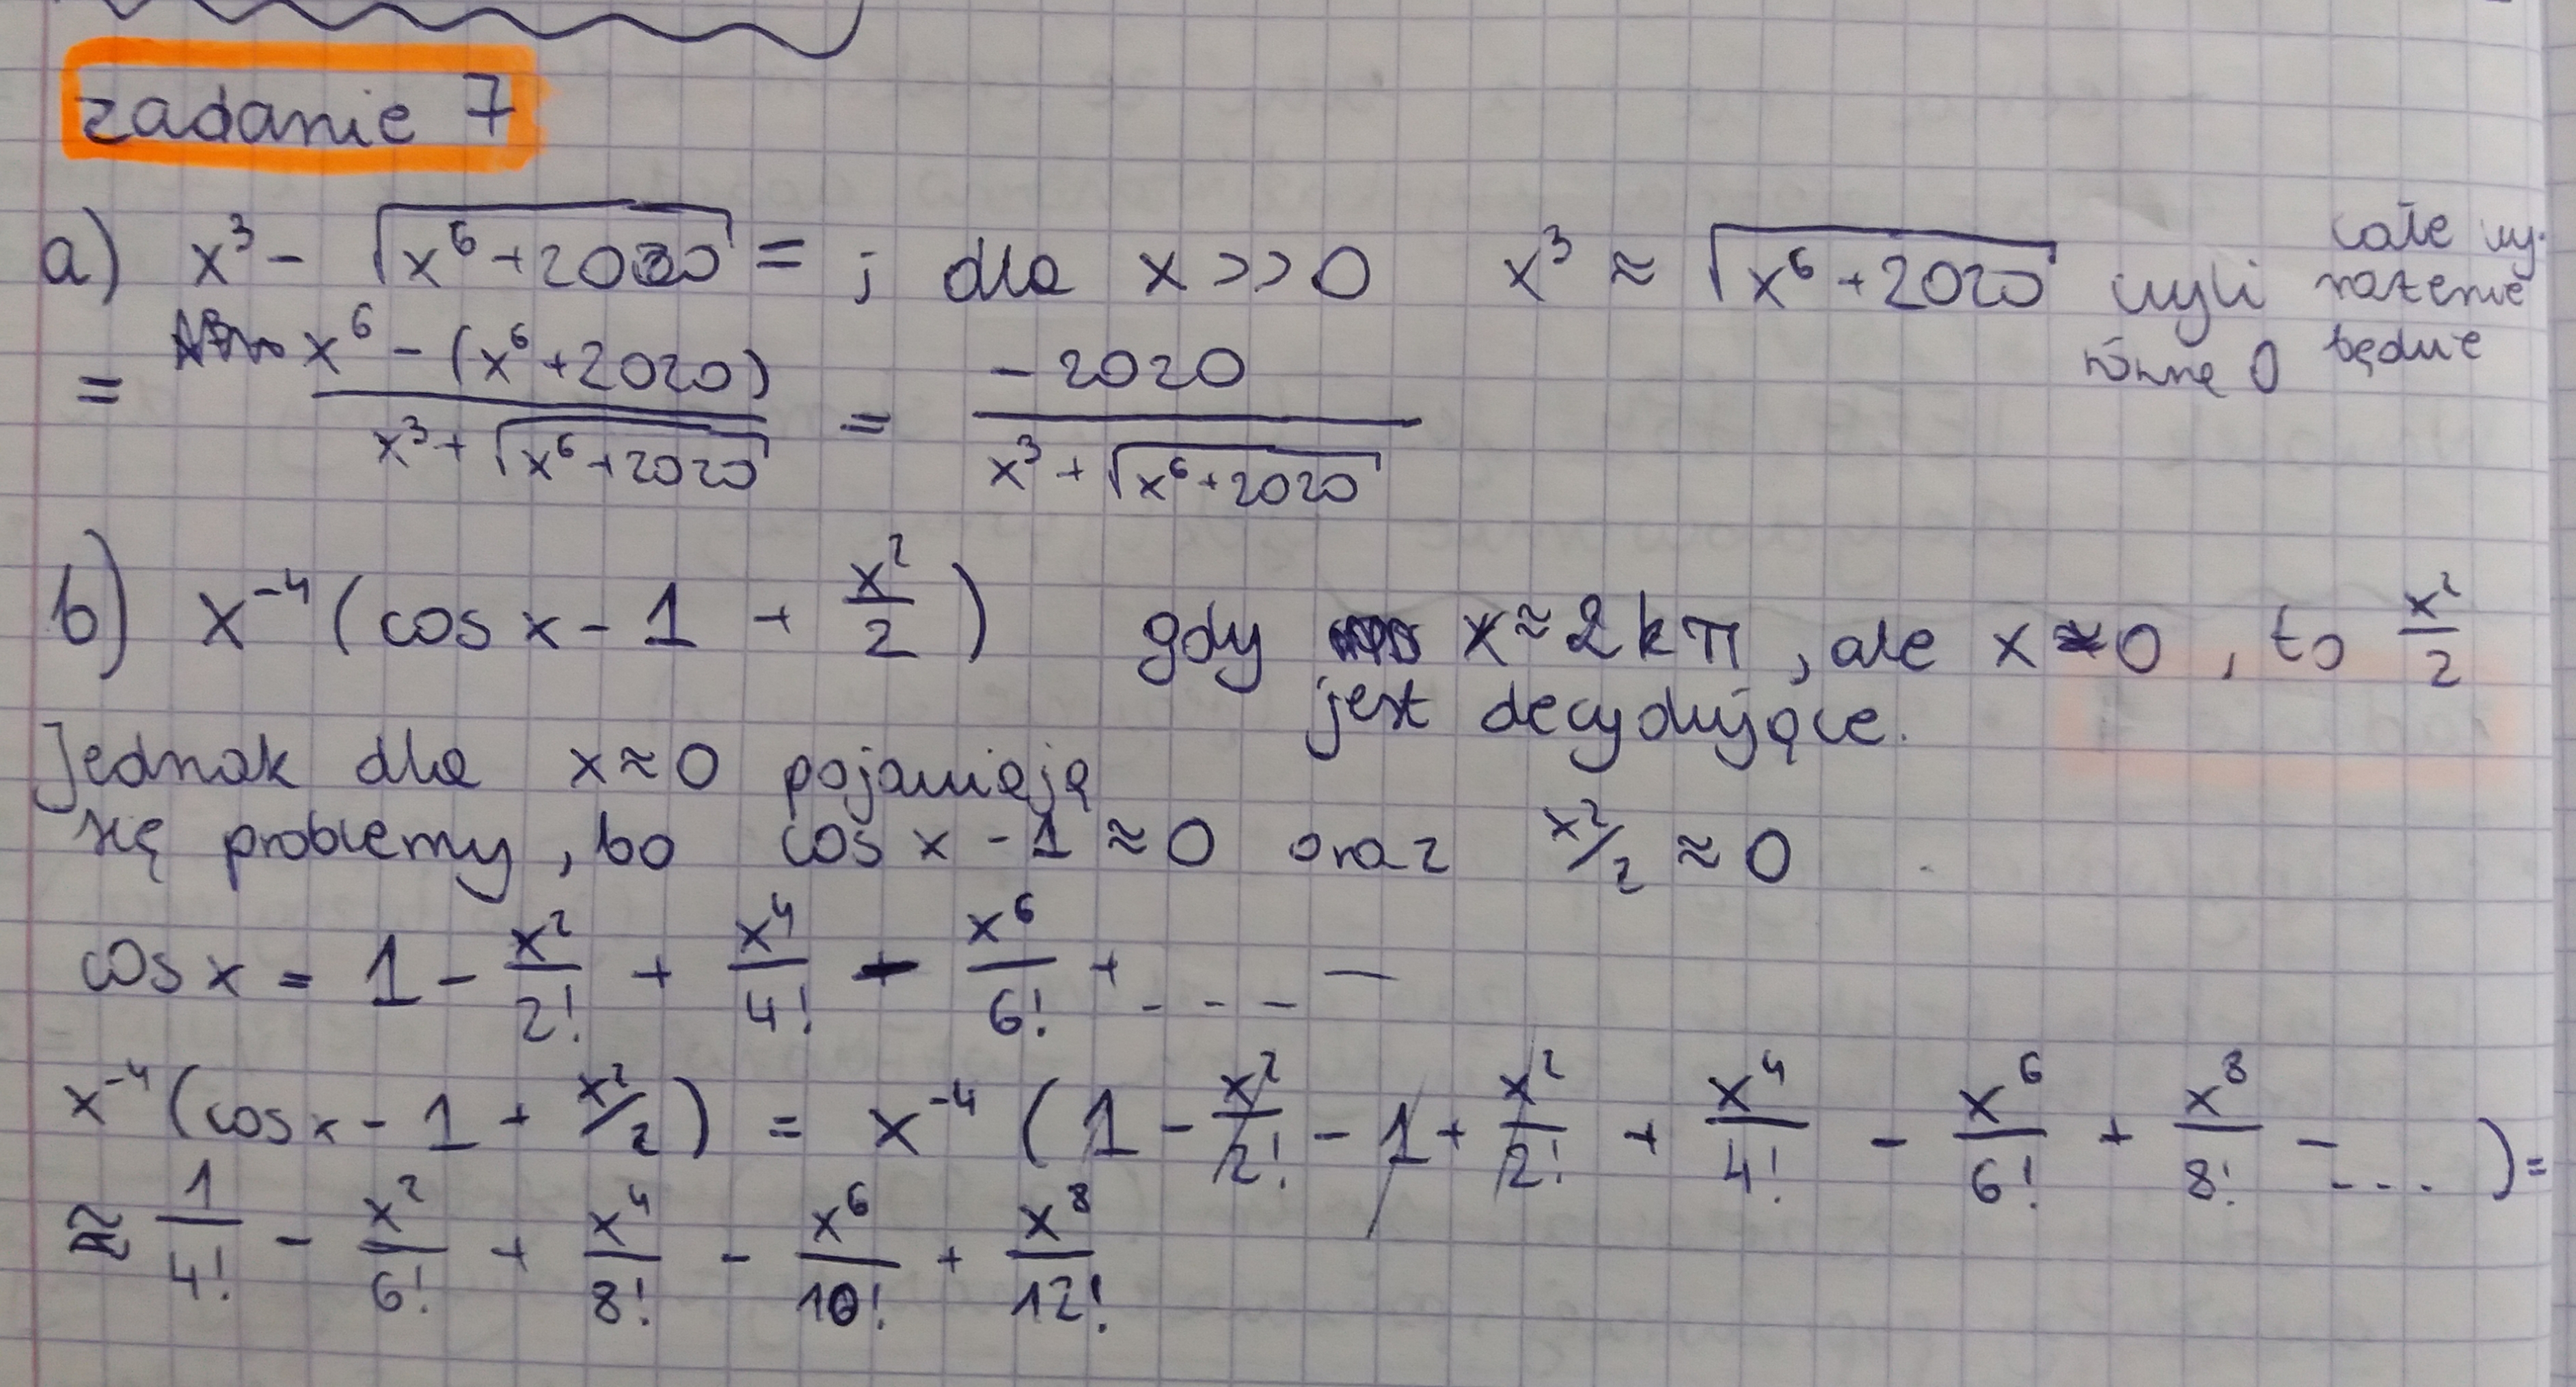 zadanie 7
a) x³ - √(x⁶+2020) = ; dla x >> 0 x³ ≈ √(x⁶+2020) czyli całe wyrażenie będzie równe 0
= (x⁶ - (x⁶+2020)) / (x³ + √(x⁶+2020)) = -2020 / (x³ + √(x⁶+2020))
b) x⁻⁴ (cos x - 1 + x²/2) gdy x ≈ 2kπ, ale x ≉ 0, to x²/2
jest decydujące.
Jednak dla x ≈ 0 pojawiają
się problemy, bo cos x - 1 ≈ 0 oraz x²/2 ≈ 0
cos x = 1 - x²/2! + x⁴/4! - x⁶/6! + .... -
x⁻⁴ (cos x - 1 + x²/2) = x⁻⁴ (1 - x²/2! - 1 + x²/2! + x⁴/4! - x⁶/6! + x⁸/8! - ....) =
≈ 1/4! - x²/6! + x⁴/8! - x⁶/10! + x⁸/12!